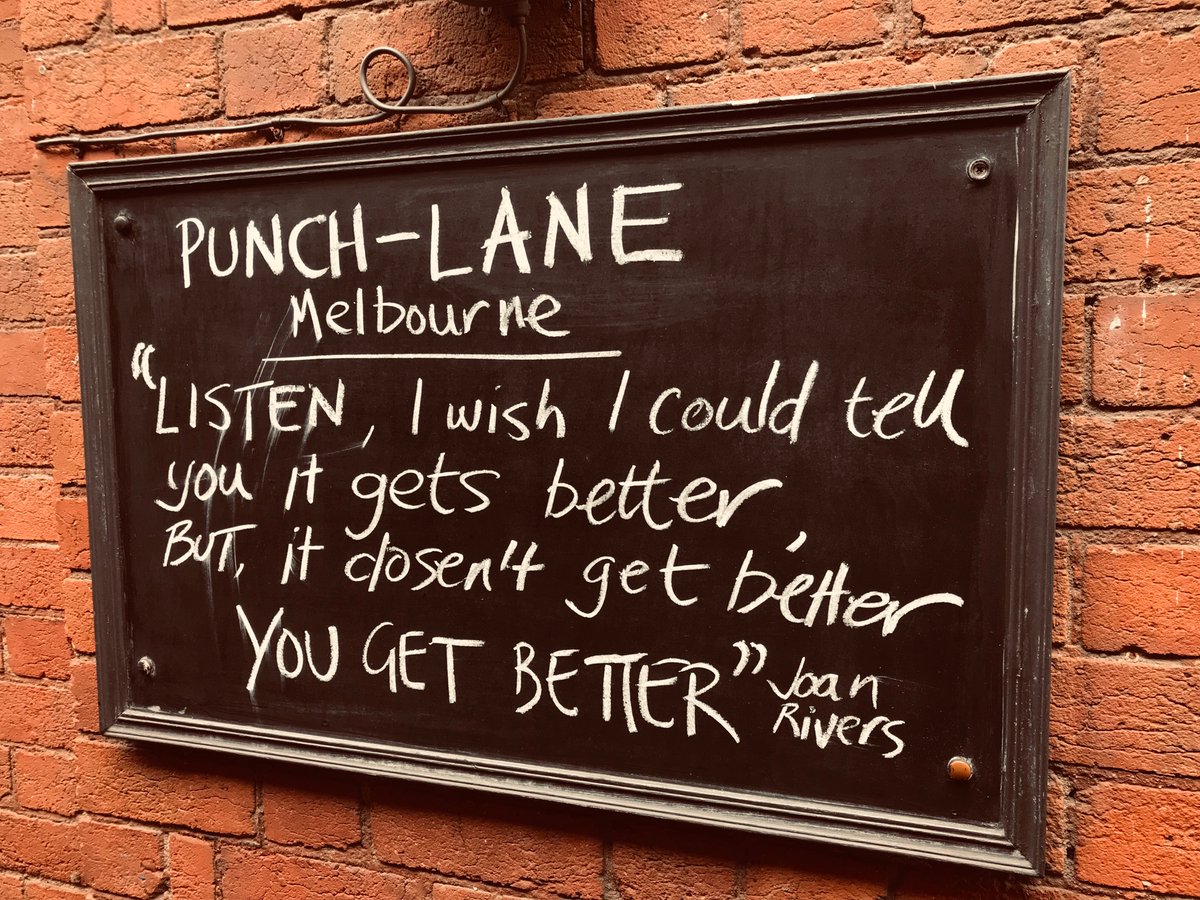 PUNCH-LANE
Melbourne
"LISTEN, I wish I could tell
you it gets better,
BUT, it dosen't get better
YOU GET BETTER" Joan
Rivers